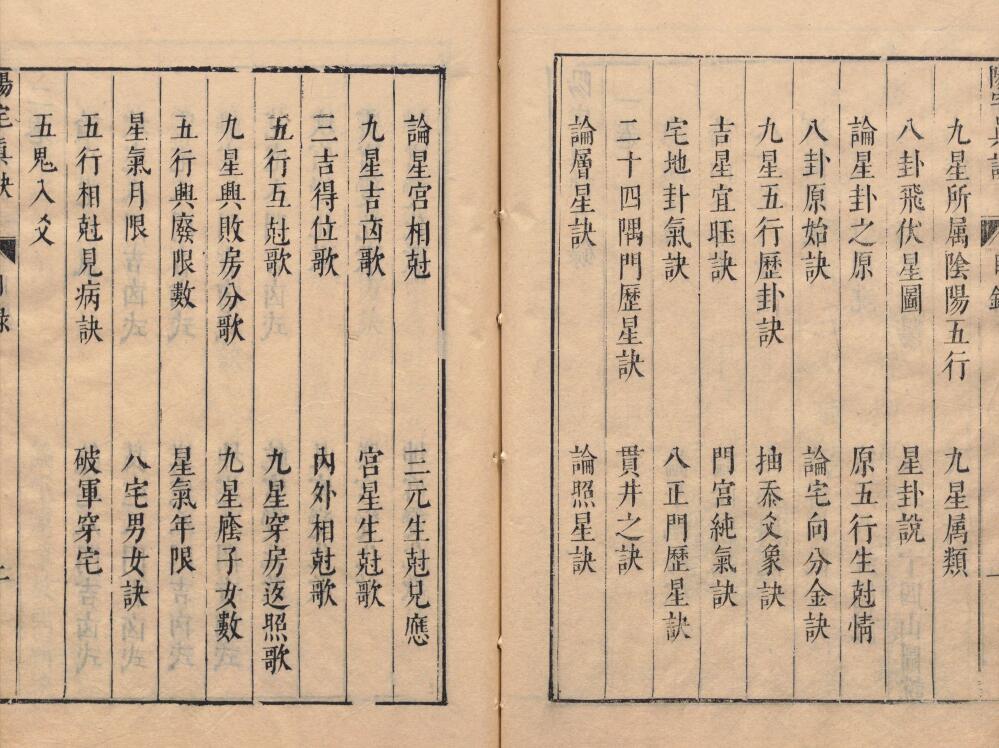 九星所属陰陽五行　九星属類
八卦飛伏星圖　星卦説
論星卦之原　原五行生尅情
八卦原始訣　論宅向分金訣
九星五行歷卦訣　抽爻象訣
吉星宜珏訣　門宫純氣訣
宅地卦氣訣　八正門歷星訣
二十四隅門歷星訣　貫井之訣
論層星訣　論照星訣
論星宫相尅　三元生尅見應
九星吉凶歌　宫星生尅歌
三吉得位歌　內外相尅歌
五行互尅歌　九星穿房返照歌
九星興敗房分歌　九星廕子女數
五行興廢限數　星氣年限
星氣月限　八宅男女訣
五行相尅見病訣　破軍穿宅
五鬼入爻
陽宅真訣　目録